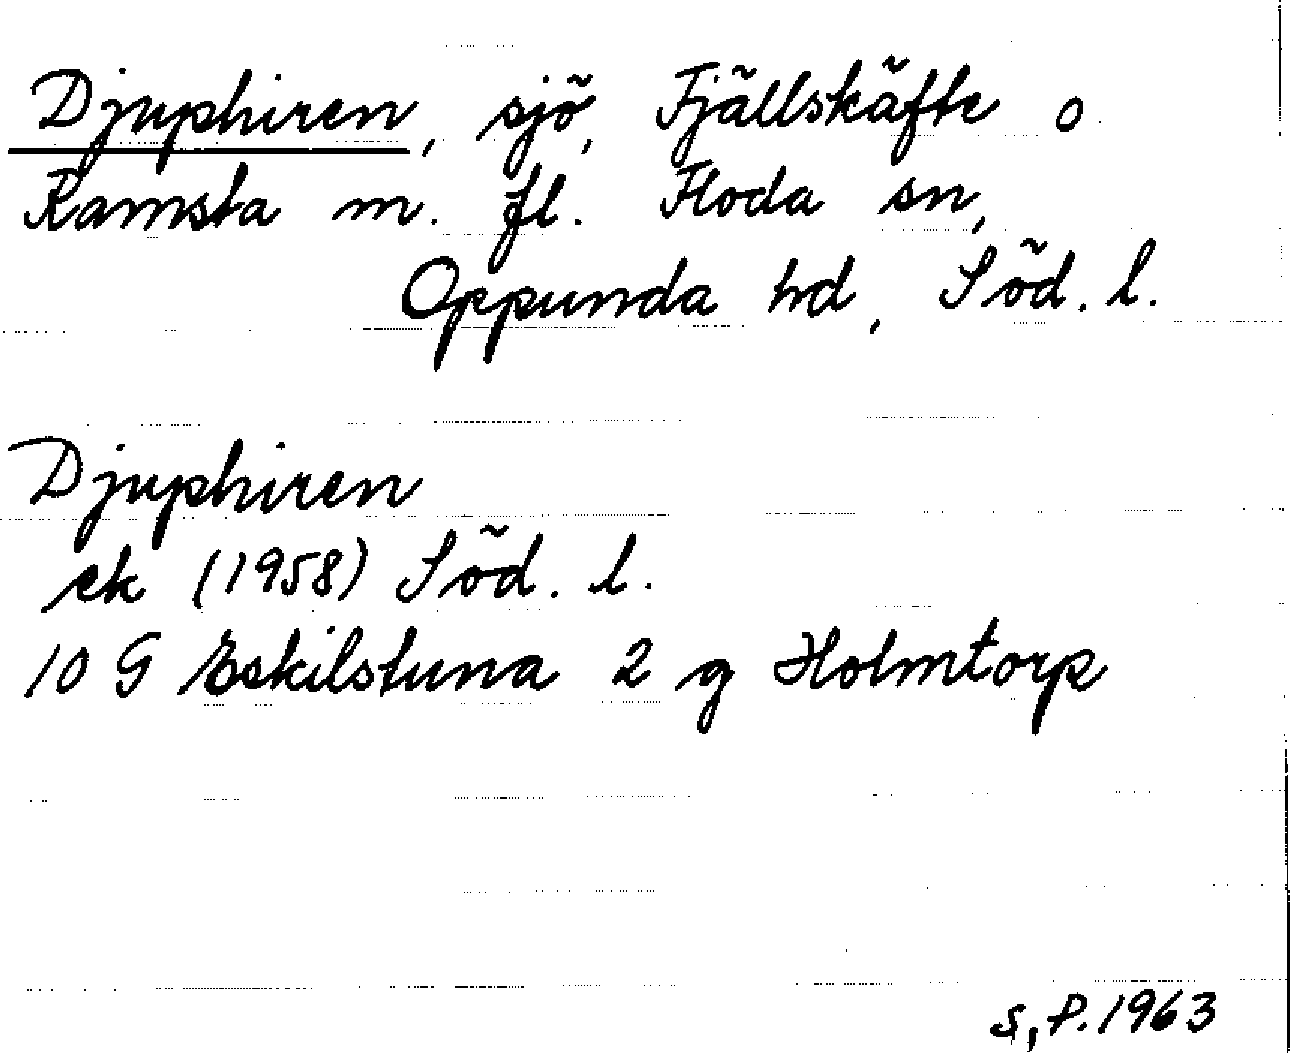 Djuphiren, sjö, Fjällskäfte o
Ramsta m. fl. Floda sn,
Oppunda hd, Söd. l.
Djuphiren
ek (1958) Söd. l.
10 G Eskilstuna 2 g Holmtorp
S, P. 1963